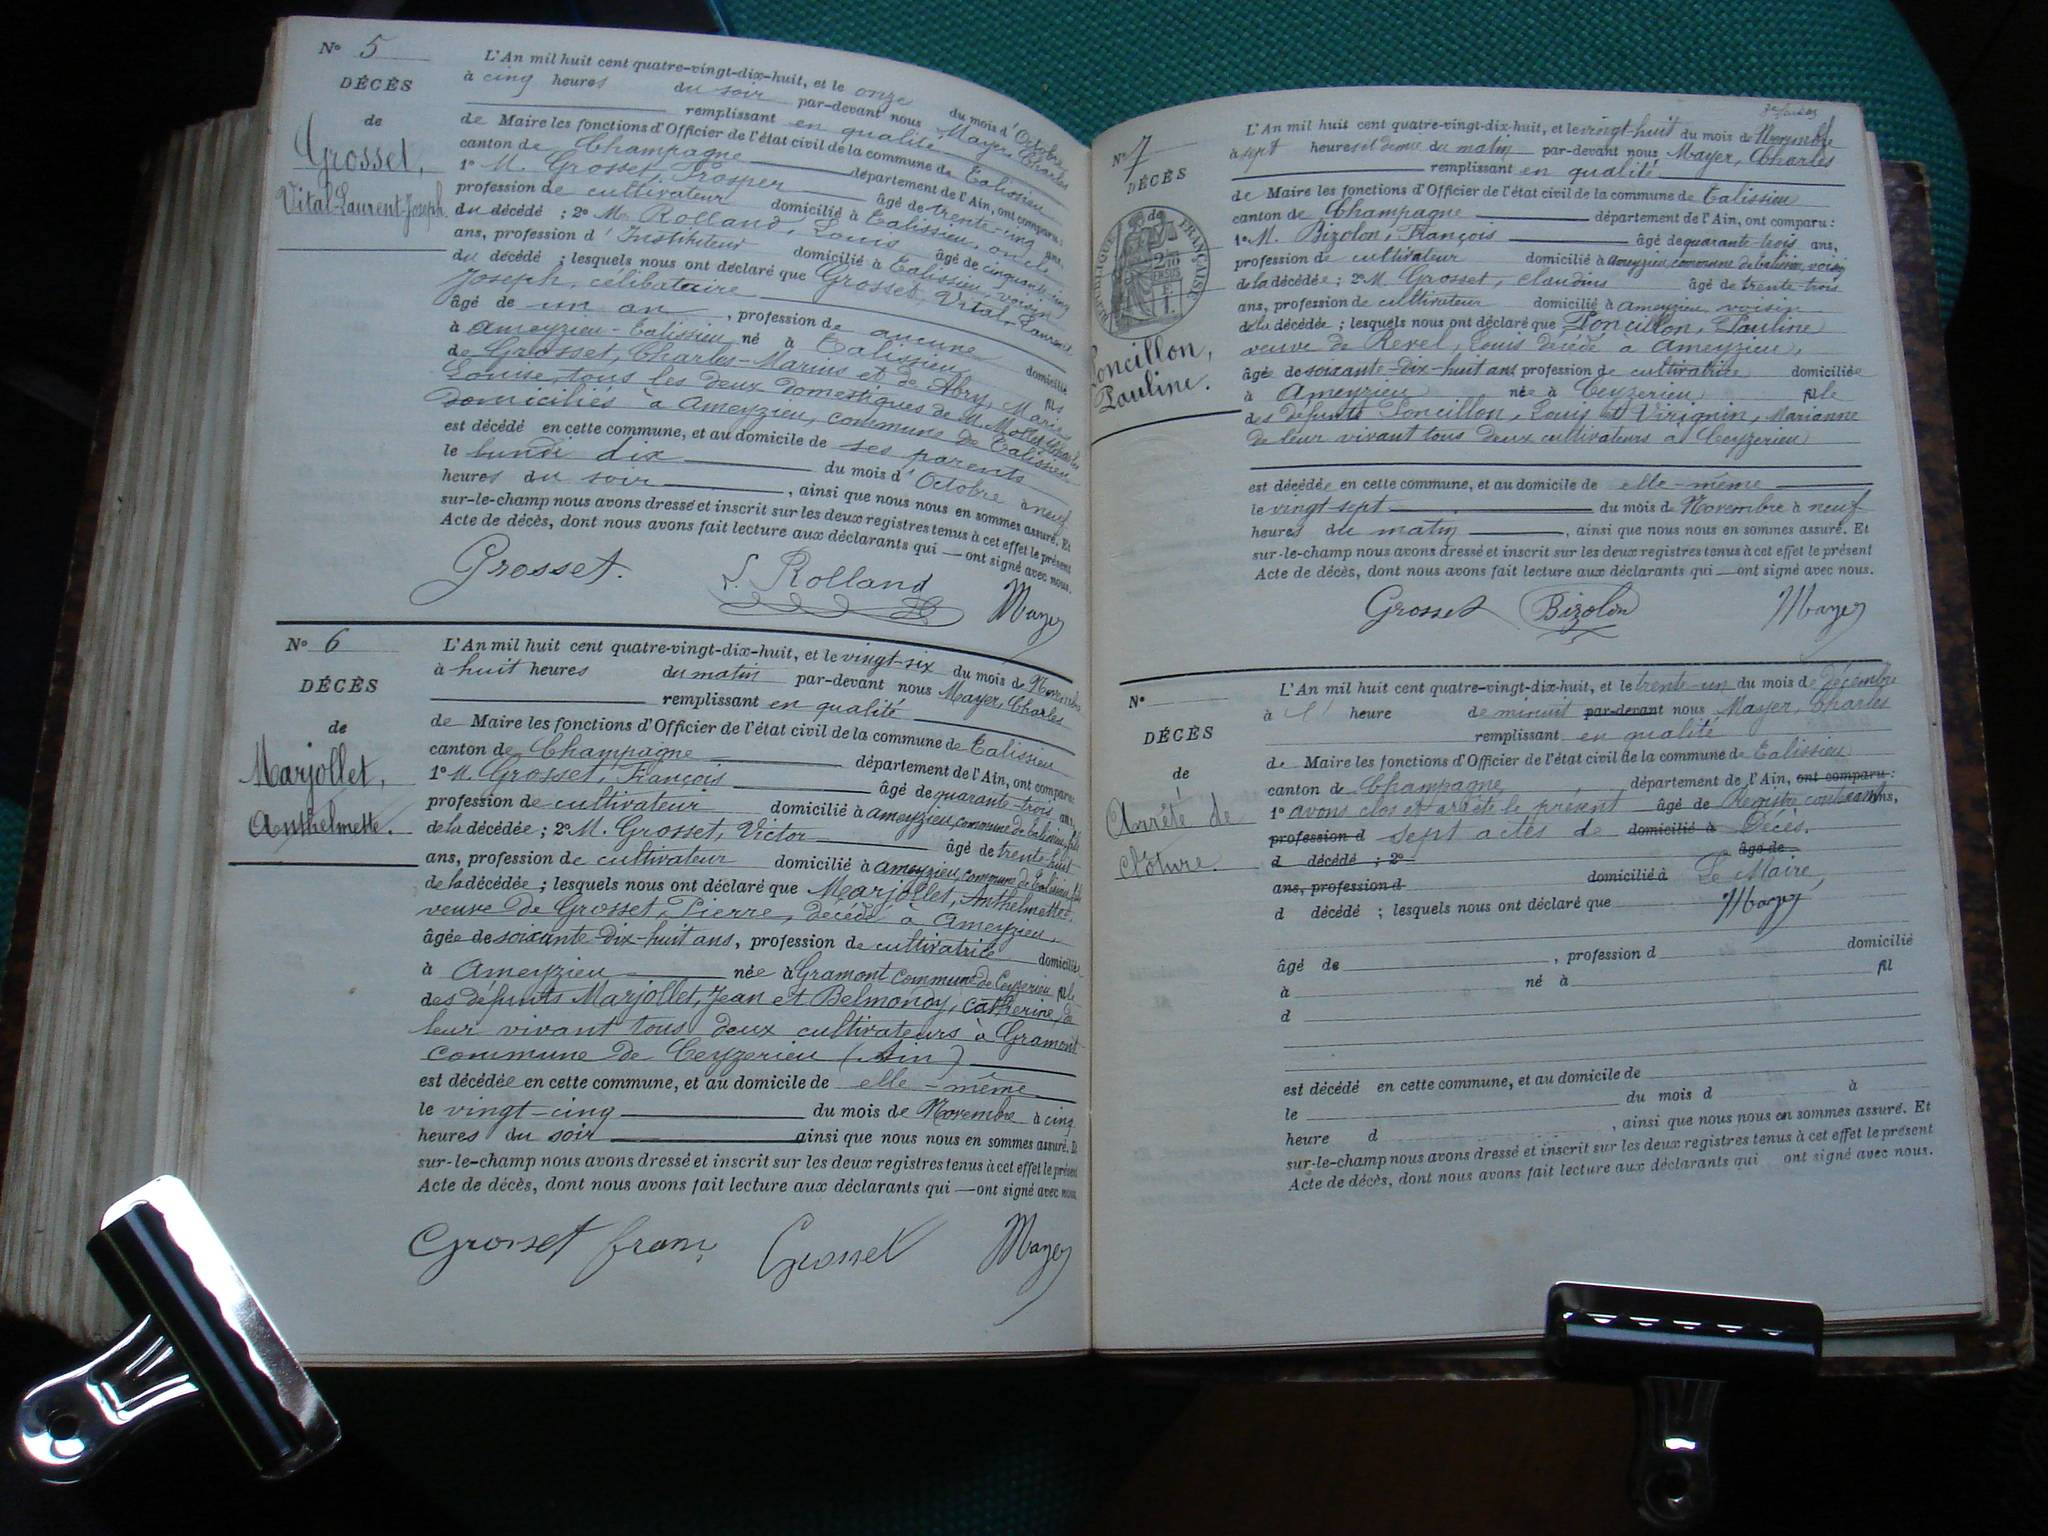 N° 5
DÉCÈS
de
Grosset,
Vital-Laurent-Joseph
L'An mil huit cent quatre-vingt-dix-huit, et le onze du mois d'Octobre
à cinq heures du soir par-devant nous Mayer, Charles
remplissant en qualité
de Maire les fonctions d'Officier de l'état civil de la commune de Talissieu
canton de Champagne département de l'Ain, ont comparu :
1° M. Grosset, Prosper âgé de trente-cinq ans,
profession de cultivateur domicilié à Talissieu, oncle
du décédé ; 2° M. Rolland, Louis âgé de cinquante-cinq
ans, profession d'Instituteur domicilié à Talissieu, voisin
du décédé ; lesquels nous ont déclaré que Grosset, Vital, Laurent
Joseph, célibataire
âgé de un an, profession de aucune domicilié
à Ameyzieu-Talissieu né à Talissieu fils
de Grosset, Charles-Marius et de Abry, Marie
Louise, tous les deux domestiques de M. Mollet
domiciliés à Ameyzieu, commune de Talissieu
est décédé en cette commune, et au domicile de ses parents
le lundi dix du mois d'Octobre à neuf
heures du soir, ainsi que nous nous en sommes assuré. Et
sur-le-champ nous avons dressé et inscrit sur les deux registres tenus à cet effet le présent
Acte de décès, dont nous avons fait lecture aux déclarants qui — ont signé avec nous.
Grosset. L. Rolland Mayer
N° 6
DÉCÈS
de
Marjollet,
Anthelmette.
L'An mil huit cent quatre-vingt-dix-huit, et le vingt-six du mois de Novembre
à huit heures du matin par-devant nous Mayer, Charles
remplissant en qualité
de Maire les fonctions d'Officier de l'état civil de la commune de Talissieu
canton de Champagne département de l'Ain, ont comparu :
1° M. Grosset, François âgé de quarante-trois ans,
profession de cultivateur domicilié à Ameyzieu, commune de Talissieu, fils
de la décédée ; 2° M. Grosset, Victor âgé de trente-huit
ans, profession de cultivateur domicilié à Ameyzieu, commune de Talissieu, fils
de la décédée ; lesquels nous ont déclaré que Marjollet, Anthelmette,
veuve de Grosset, Pierre, décédé à Ameyzieu,
âgée de soixante-dix-huit ans, profession de cultivatrice domiciliée
à Ameyzieu née à Gramont commune de Ceyzerieu fille
des défunts Marjollet, Jean et Belmondy, Catherine, de
leur vivant tous deux cultivateurs à Gramont
commune de Ceyzerieu (Ain)
est décédée en cette commune, et au domicile de elle-même
le vingt-cinq du mois de Novembre à cinq
heures du soir ainsi que nous nous en sommes assuré. Et
sur-le-champ nous avons dressé et inscrit sur les deux registres tenus à cet effet le présent
Acte de décès, dont nous avons fait lecture aux déclarants qui — ont signé avec nous.
Grosset franc Grosset Mayer
N° 7
DÉCÈS
de
RÉPUBLIQUE FRANÇAISE
Poncillon,
Pauline.
L'An mil huit cent quatre-vingt-dix-huit, et le vingt-huit du mois de Novembre
à sept heures et demie du matin par-devant nous Mayer, Charles
remplissant en qualité
de Maire les fonctions d'Officier de l'état civil de la commune de Talissieu
canton de Champagne département de l'Ain, ont comparu :
1° M. Bizolon, François âgé de quarante-trois ans,
profession de cultivateur domicilié à Ameyzieu, commune de Talissieu, voisin
de la décédée ; 2° M. Grosset, Claudius âgé de trente-trois
ans, profession de cultivateur domicilié à Ameyzieu voisin
de la décédée ; lesquels nous ont déclaré que Poncillon, Pauline
veuve de Revel, Louis décédé à Ameyzieu,
âgée de soixante-dix-huit ans profession de cultivatrice domiciliée
à Ameyzieu née à Ceyzerieu fille
des défunts Poncillon, Louis et Virignin, Marianne
de leur vivant tous deux cultivateurs à Ceyzerieu
est décédée en cette commune, et au domicile de elle-même
le vingt-sept du mois de Novembre à neuf
heures du matin, ainsi que nous nous en sommes assuré. Et
sur-le-champ nous avons dressé et inscrit sur les deux registres tenus à cet effet le présent
Acte de décès, dont nous avons fait lecture aux déclarants qui — ont signé avec nous.
Grosset Bizolon Mayer
N°
DÉCÈS
de
Arrêté de
clôture.
L'An mil huit cent quatre-vingt-dix-huit, et le trente-un du mois de décembre
à l' heure de minuit par-devant nous Mayer, Charles
remplissant en qualité
de Maire les fonctions d'Officier de l'état civil de la commune de Talissieu
canton de Champagne, département de l'Ain, ont comparu :
1° avons clos et arrêté le présent âgé de Registre contenant ans,
profession d sept actes de domicilié à Décès.
d décédé ; 2° âgé de
ans, profession d domicilié à Le Maire,
d décédé ; lesquels nous ont déclaré que Mayer
âgé de , profession d domicilié
à né à fil
d
est décédé en cette commune, et au domicile de
le du mois d à
heure d , ainsi que nous nous en sommes assuré. Et
sur-le-champ nous avons dressé et inscrit sur les deux registres tenus à cet effet le présent
Acte de décès, dont nous avons fait lecture aux déclarants qui ont signé avec nous.